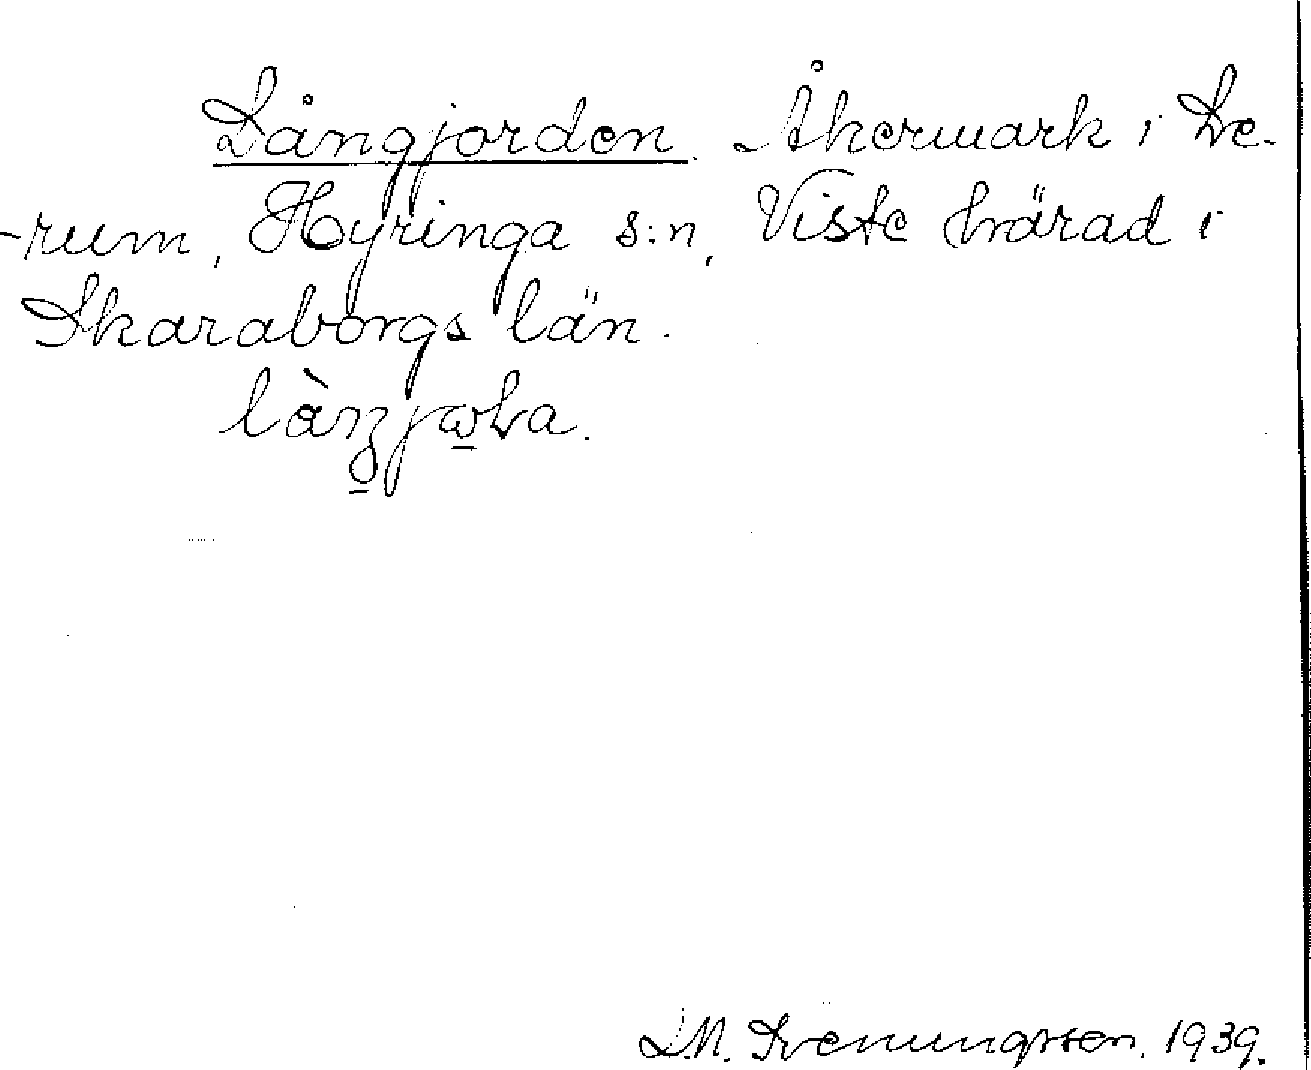 Långjorden. Åkermark i Le-
-rum, Hyringa s:n, Viste härad i
Skaraborgs län.
S.M. Svenungsson. 1939.